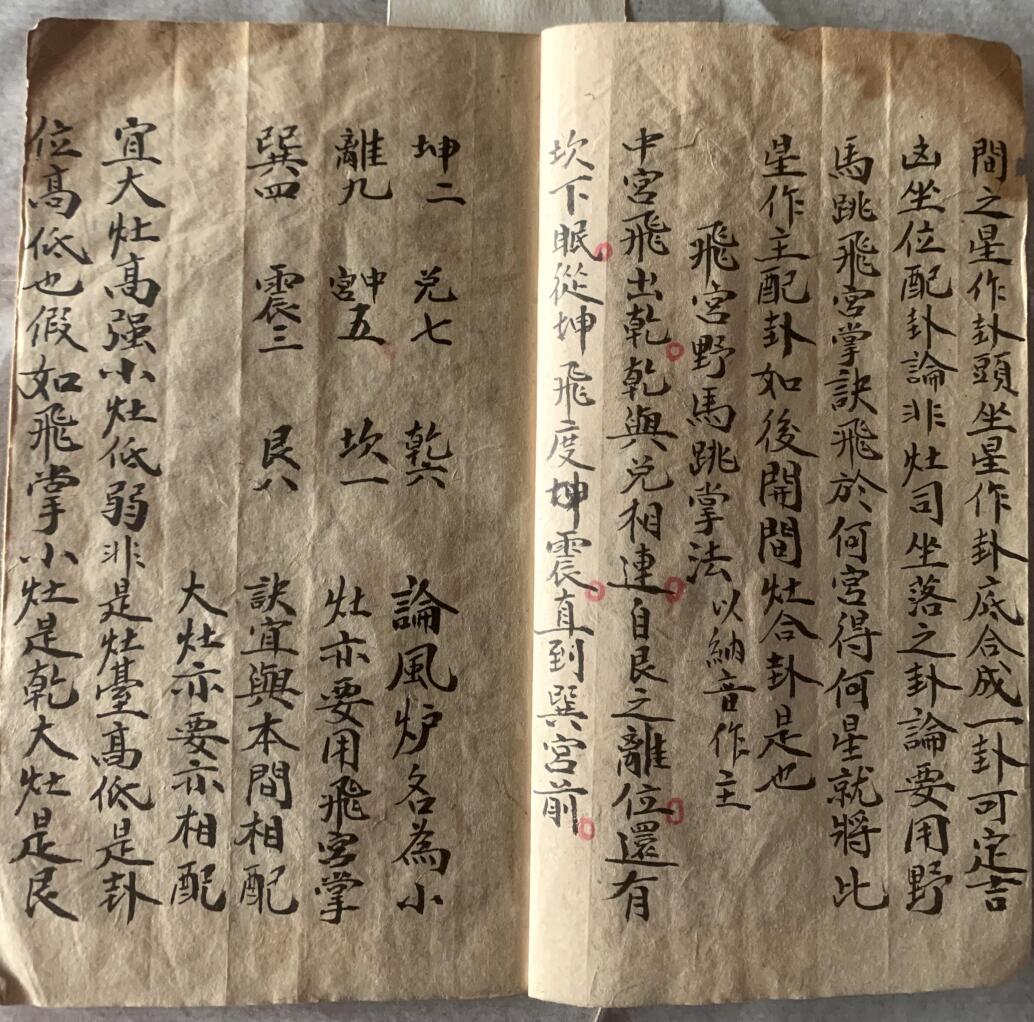 間之星作卦頭坐星作卦底合成一卦可定吉
凶坐位配卦論非灶司坐落之卦論要用野
馬跳飛宮掌訣飛於何宮得何星就將比
星作主配卦如後開間灶合卦是也
飛宮野馬跳掌法 以納音作主
中宮飛出乾乾與兌相連自艮之離位還有
坎下眠從坤飛度坤震直到巽宮前
坤二 兌七 乾六
離九 中宮五 坎一
巽四 震三 艮八
論風炉名為小
灶亦要用飛宮掌
訣宜與本間相配
大灶亦要亦相配
宜大灶高强小灶低弱非是灶臺高低是卦
位高低也假如飛掌小灶是乾大灶是艮